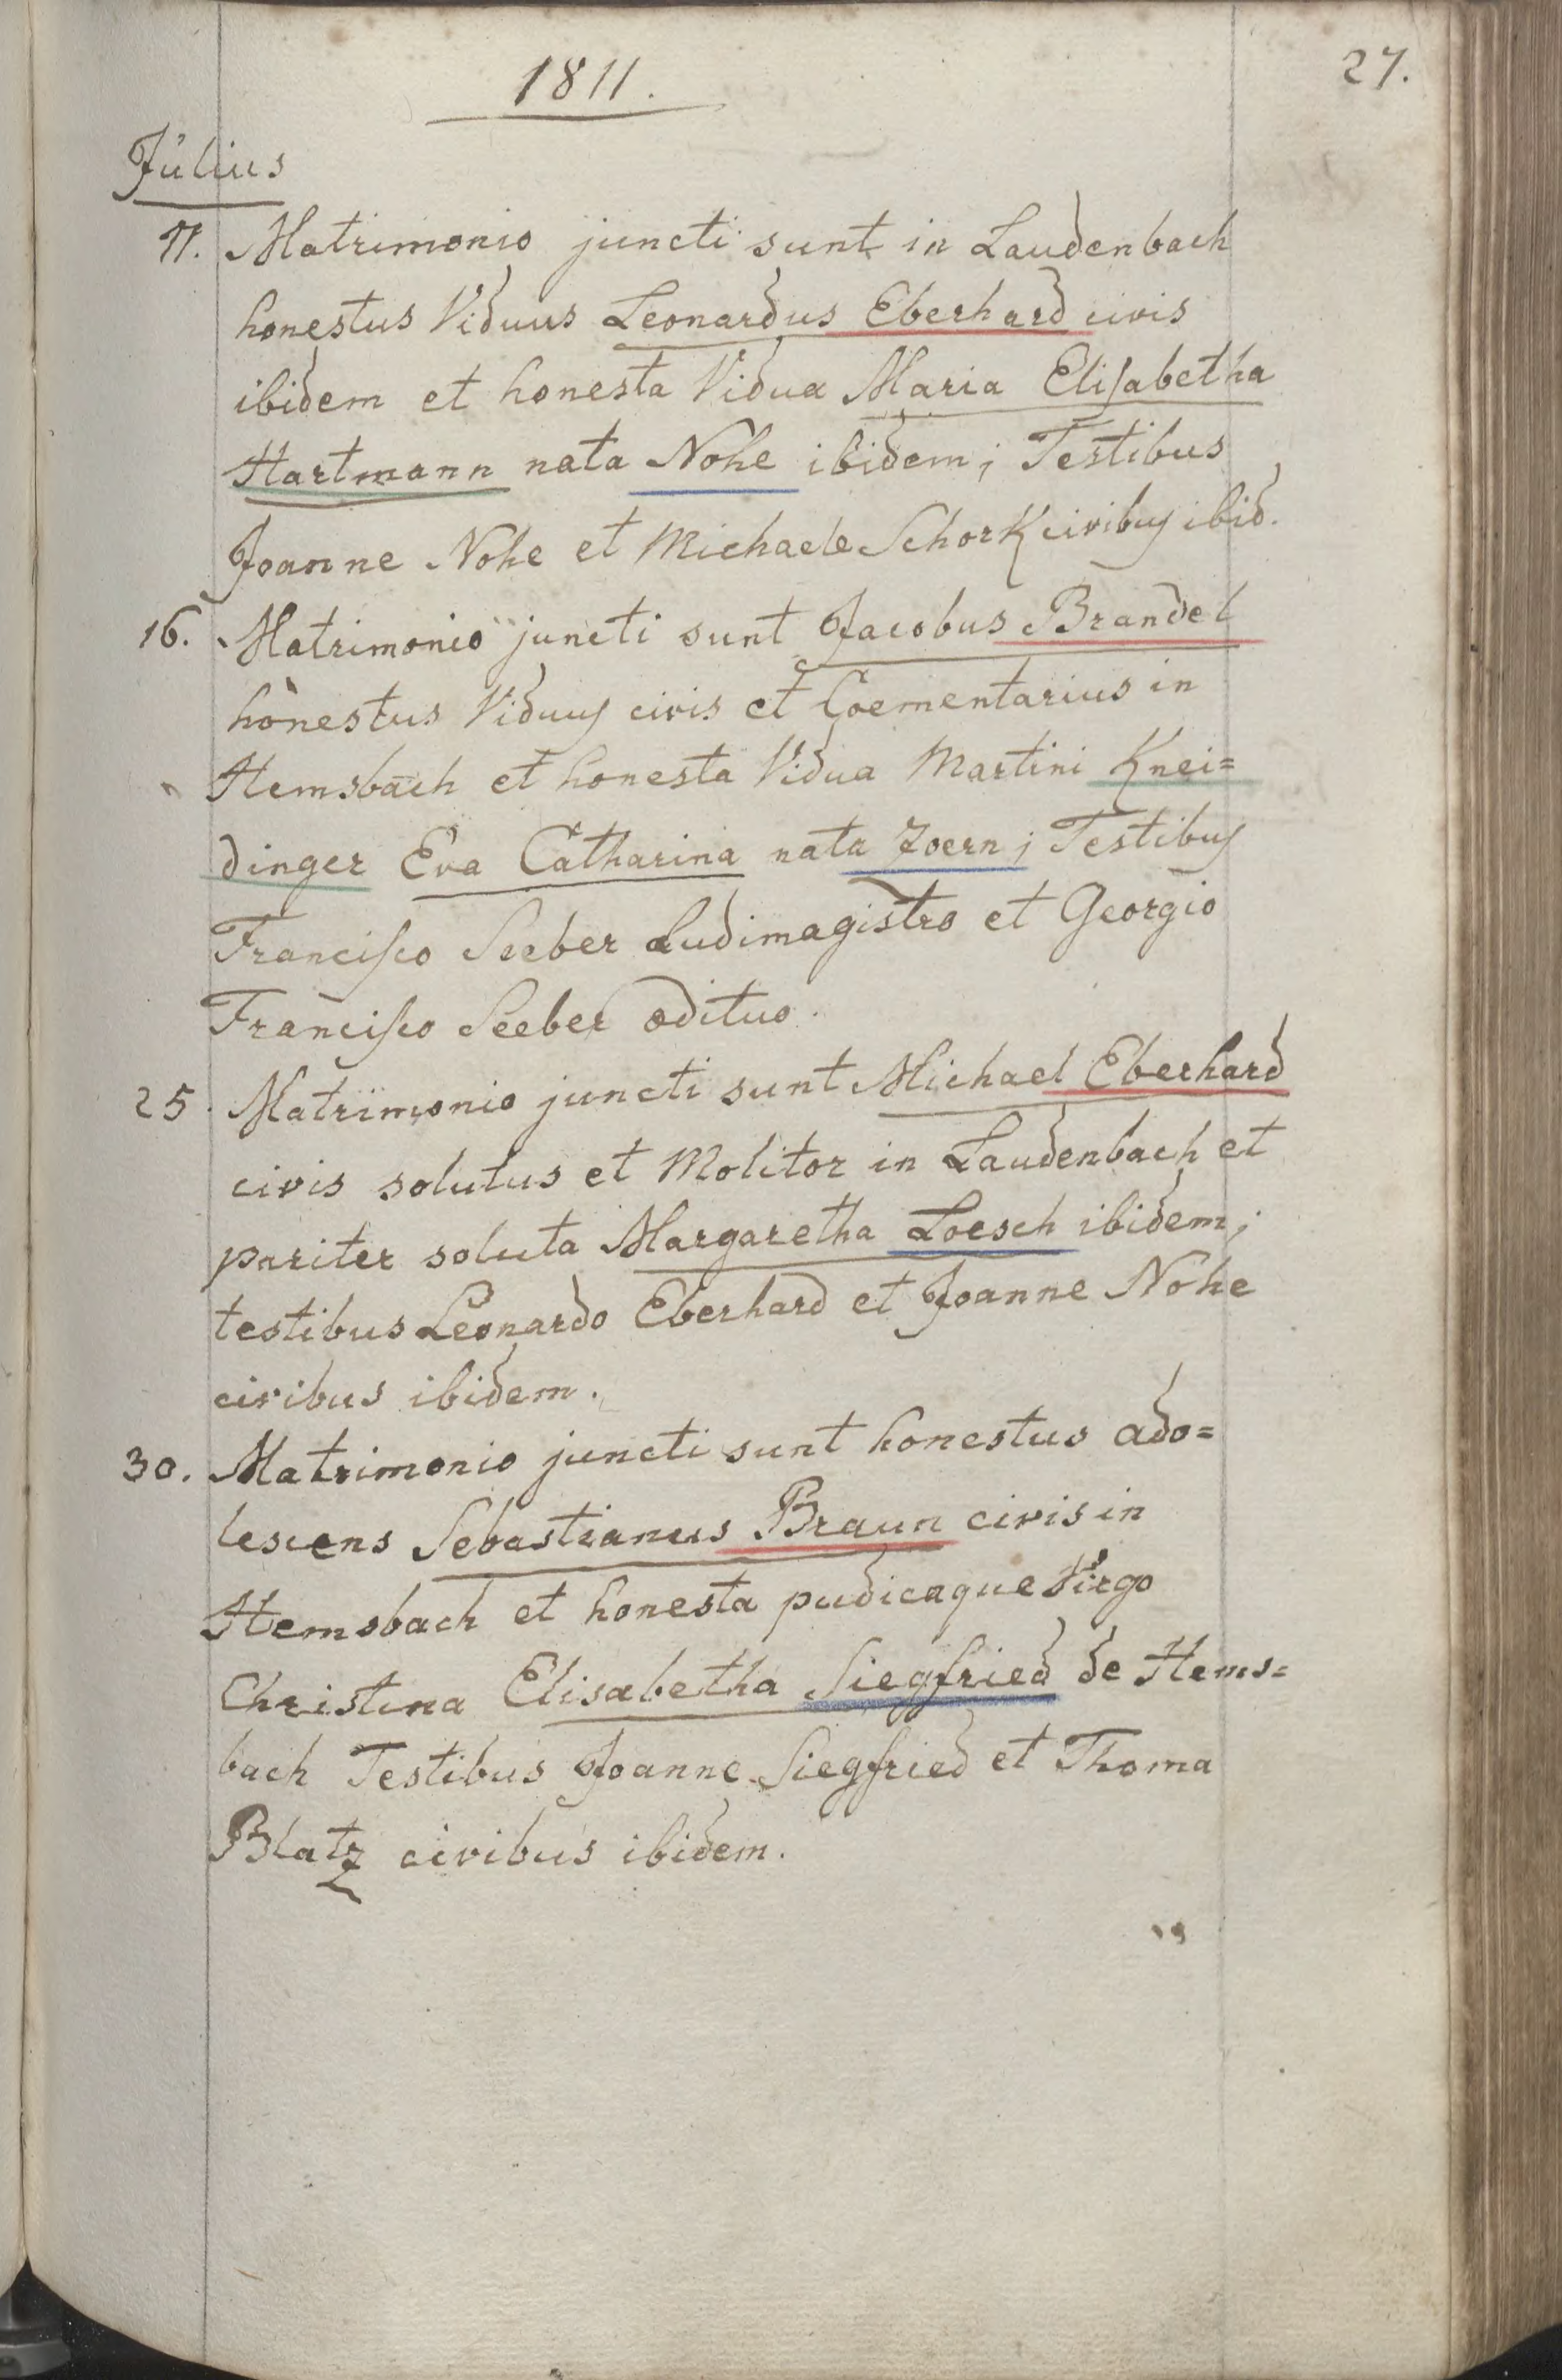 1811.
27.
Július
11. Matrimonio juncti sunt in Laudenbach
honestus Viduus Leonardus Eberhard civis
ibidem et honesta Vidua Maria Eliſabetha
Hartmann nata Nohe ibidem; Testibus
Joanne Nohe et Michaele Schork civibus ibid.
16. Matrimonio juncti sunt Jacobus Brandel
honestus Viduus civis et Coementarius in
Hemsbach et honesta Vidua Martini Knei=
dinger Eva Catharina nata Zoern; Testibus
Franciſco Seeber Ludimagistro et Georgio
Franciſco Seeber ædituo.
25. Matrimonio juncti sunt Michael Eberhard
civis solutus et Molitor in Laudenbach et
pariter soluta Margaretha Loesch ibidem;
testibus Leonardo Eberhard et Joanne Nohe
civibus ibidem.
30. Matrimonio juncti sunt honestus ado=
lescens Sebastianus Braun civis in
Hemsbach et honesta pudicaque Virgo
Christina Elisabetha Siegfried de Hems=
bach Testibus Joanne Siegfried et Thoma
Blatz civibus ibidem.